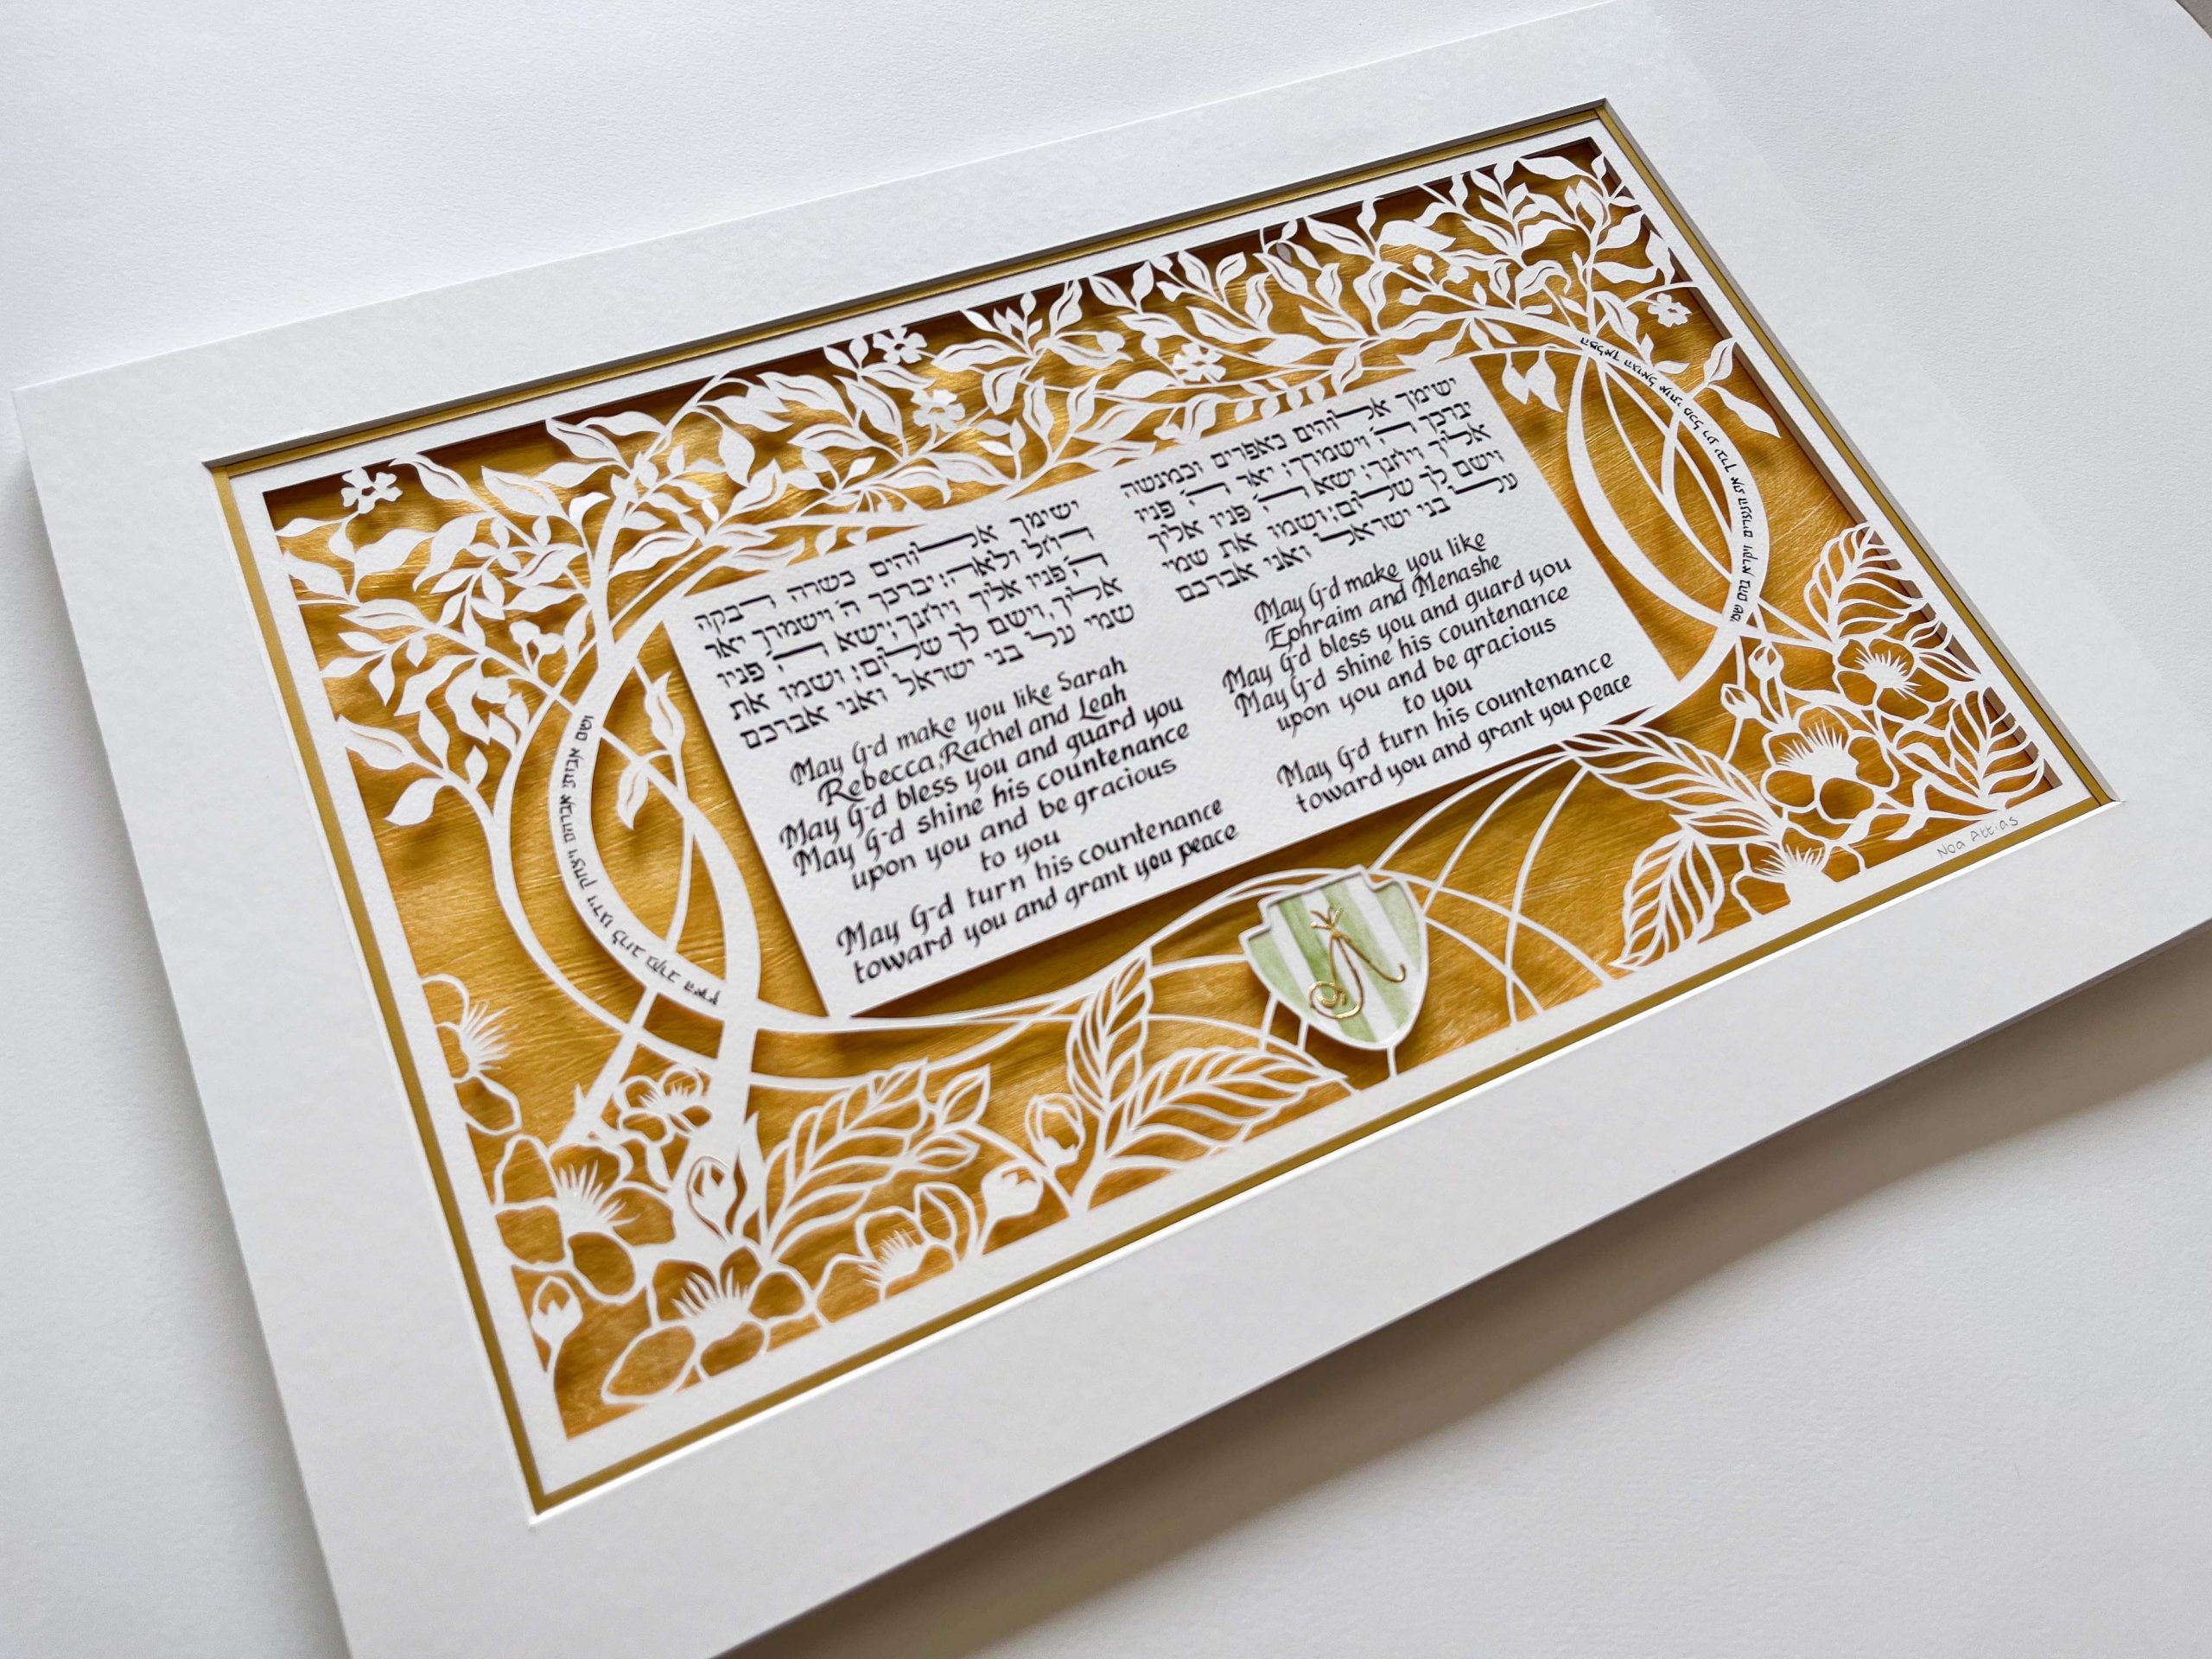 ישימך אלוהים כאפרים וכמנשה
יברכך ה׳ וישמרך; יאר ה׳ פניו
אליך ויחנך; ישא ה׳ פניו אליך
וישם לך שלום; ושמו את שמי
על בני ישראל ואני אברכם
May G-d make you like
Ephraim and Menashe
May G-d bless you and guard you
May G-d shine his countenance
upon you and be gracious
to you
May G-d turn his countenance
toward you and grant you peace
ישימך אלוהים כשרה רבקה
רחל ולאה; יברכך ה׳ וישמרך יאר
ה׳ פניו אליך ויחנך; ישא ה׳ פניו
אליך, וישם לך שלום; ושמו את
שמי על בני ישראל ואני אברכם
May G-d make you like Sarah
Rebecca, Rachel and Leah
May G-d bless you and guard you
May G-d shine his countenance
upon you and be gracious
to you
May G-d turn his countenance
toward you and grant you peace
המלאך הגואל אותי מכל רע יברך את הנערים ויקרא בהם שמי
ושם אבותי אברהם ויצחק וידגו לרוב בקרב הארץ
Noa Attias